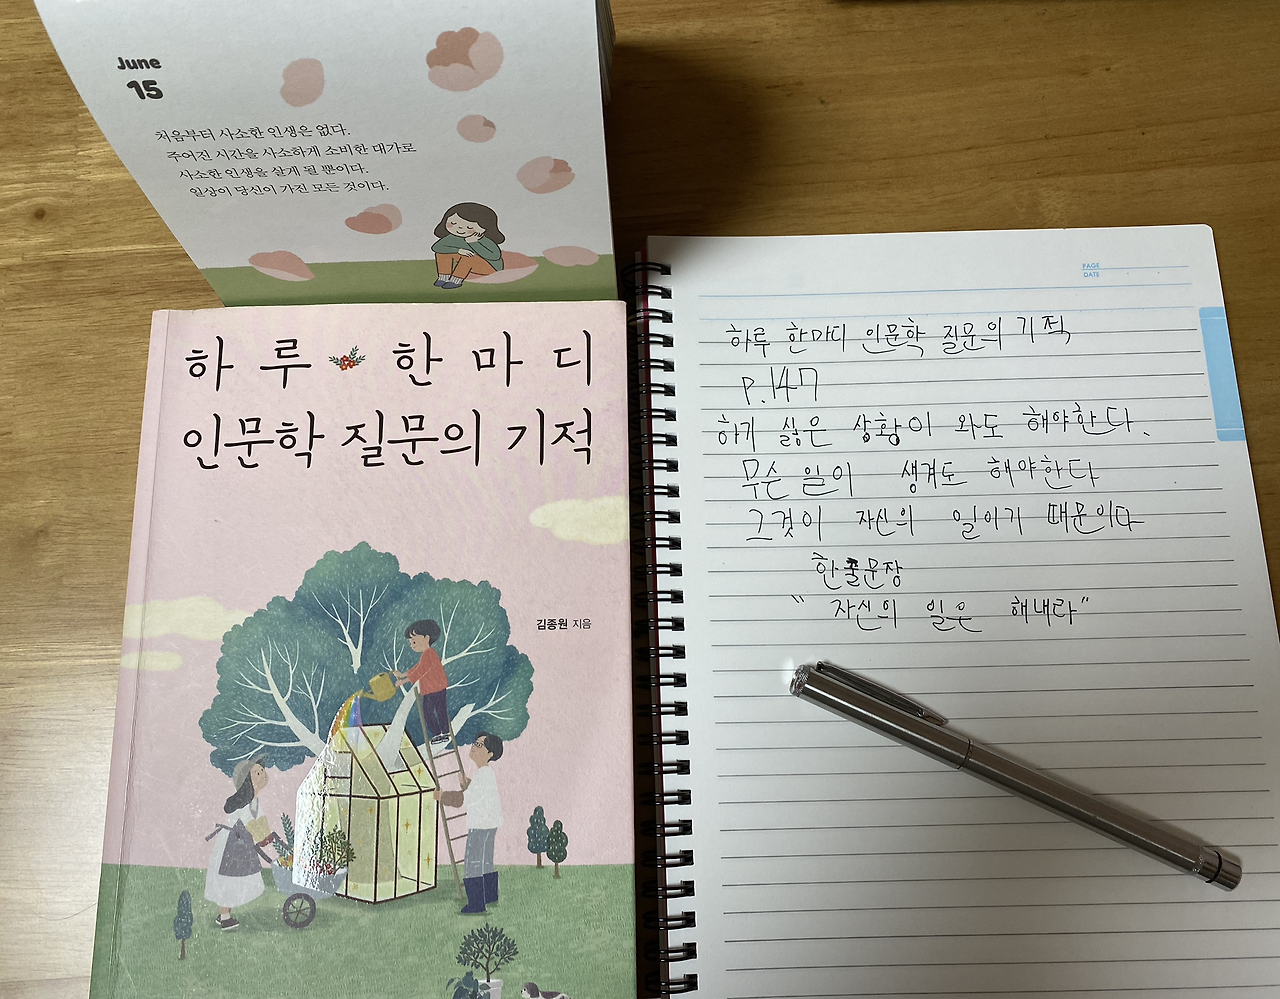 June
15
처음부터 사소한 인생은 없다.
주어진 시간을 사소하게 소비한 대가로
사소한 인생을 살게 될 뿐이다.
일상이 당신이 가진 모든 것이다.
하루 한마디
인문학 질문의 기적
김종원 지음
PAGE
DATE
하루 한마디 인문학 질문의 기적
P.147
하기 싫은 상황이 와도 해야한다.
무슨 일이 생겨도 해야한다
그것이 자신의 일이기 때문이다
한줄문장
"자신의 일은 해내라"